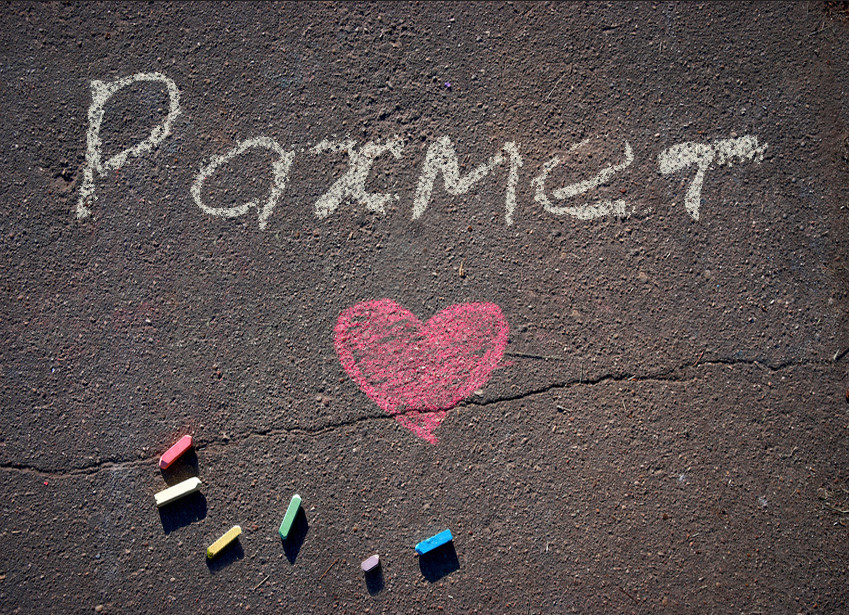 Рахмет